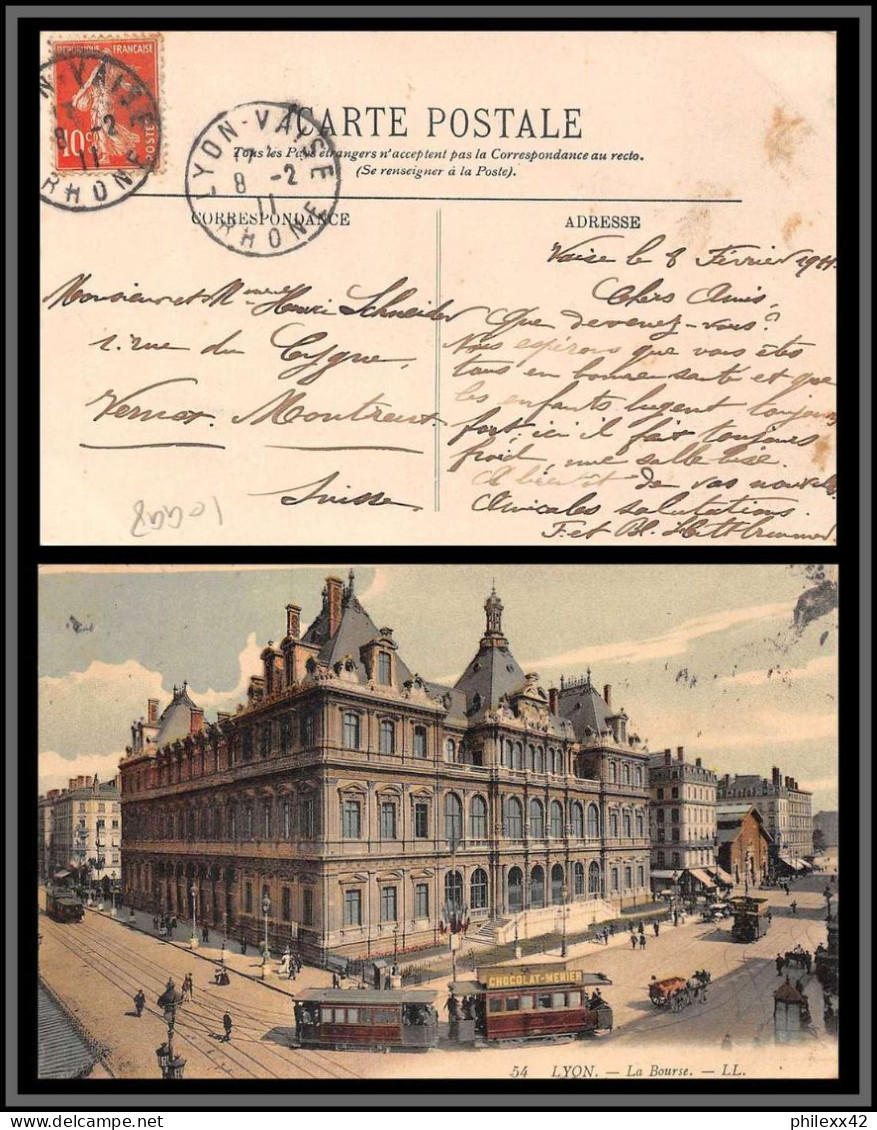 RÉPUBLIQUE FRANÇAISE
10c
POSTES
LYON-VAISE
8 -2
11
RHONE
LYON-VAISE
8 -2
11
RHONE
CARTE POSTALE
Tous les Pays étrangers n'acceptent pas la Correspondance au recto.
(Se renseigner à la Poste).
CORRESPONDANCE
ADRESSE
Monsieur et Mme Henri Schneider
1. rue du Cygne
Vernex. Montreux
Suisse
Vaise le 8 Février 1911.
Chers Amis,
Que devenez-vous?
Nous espérons que vous êtes
tous en bonne santé et que
les enfants lugent toujours
fort, ici il fait toujours
froid, une salle bise.
A bientôt de vos nouvelles
Amicales salutations.
F. et Bl.
CHOCOLAT-MENIER
54 LYON. — La Bourse. — LL.
philexx42